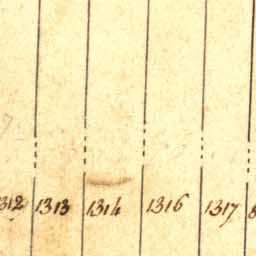 1312 1313 1314 1316 1317